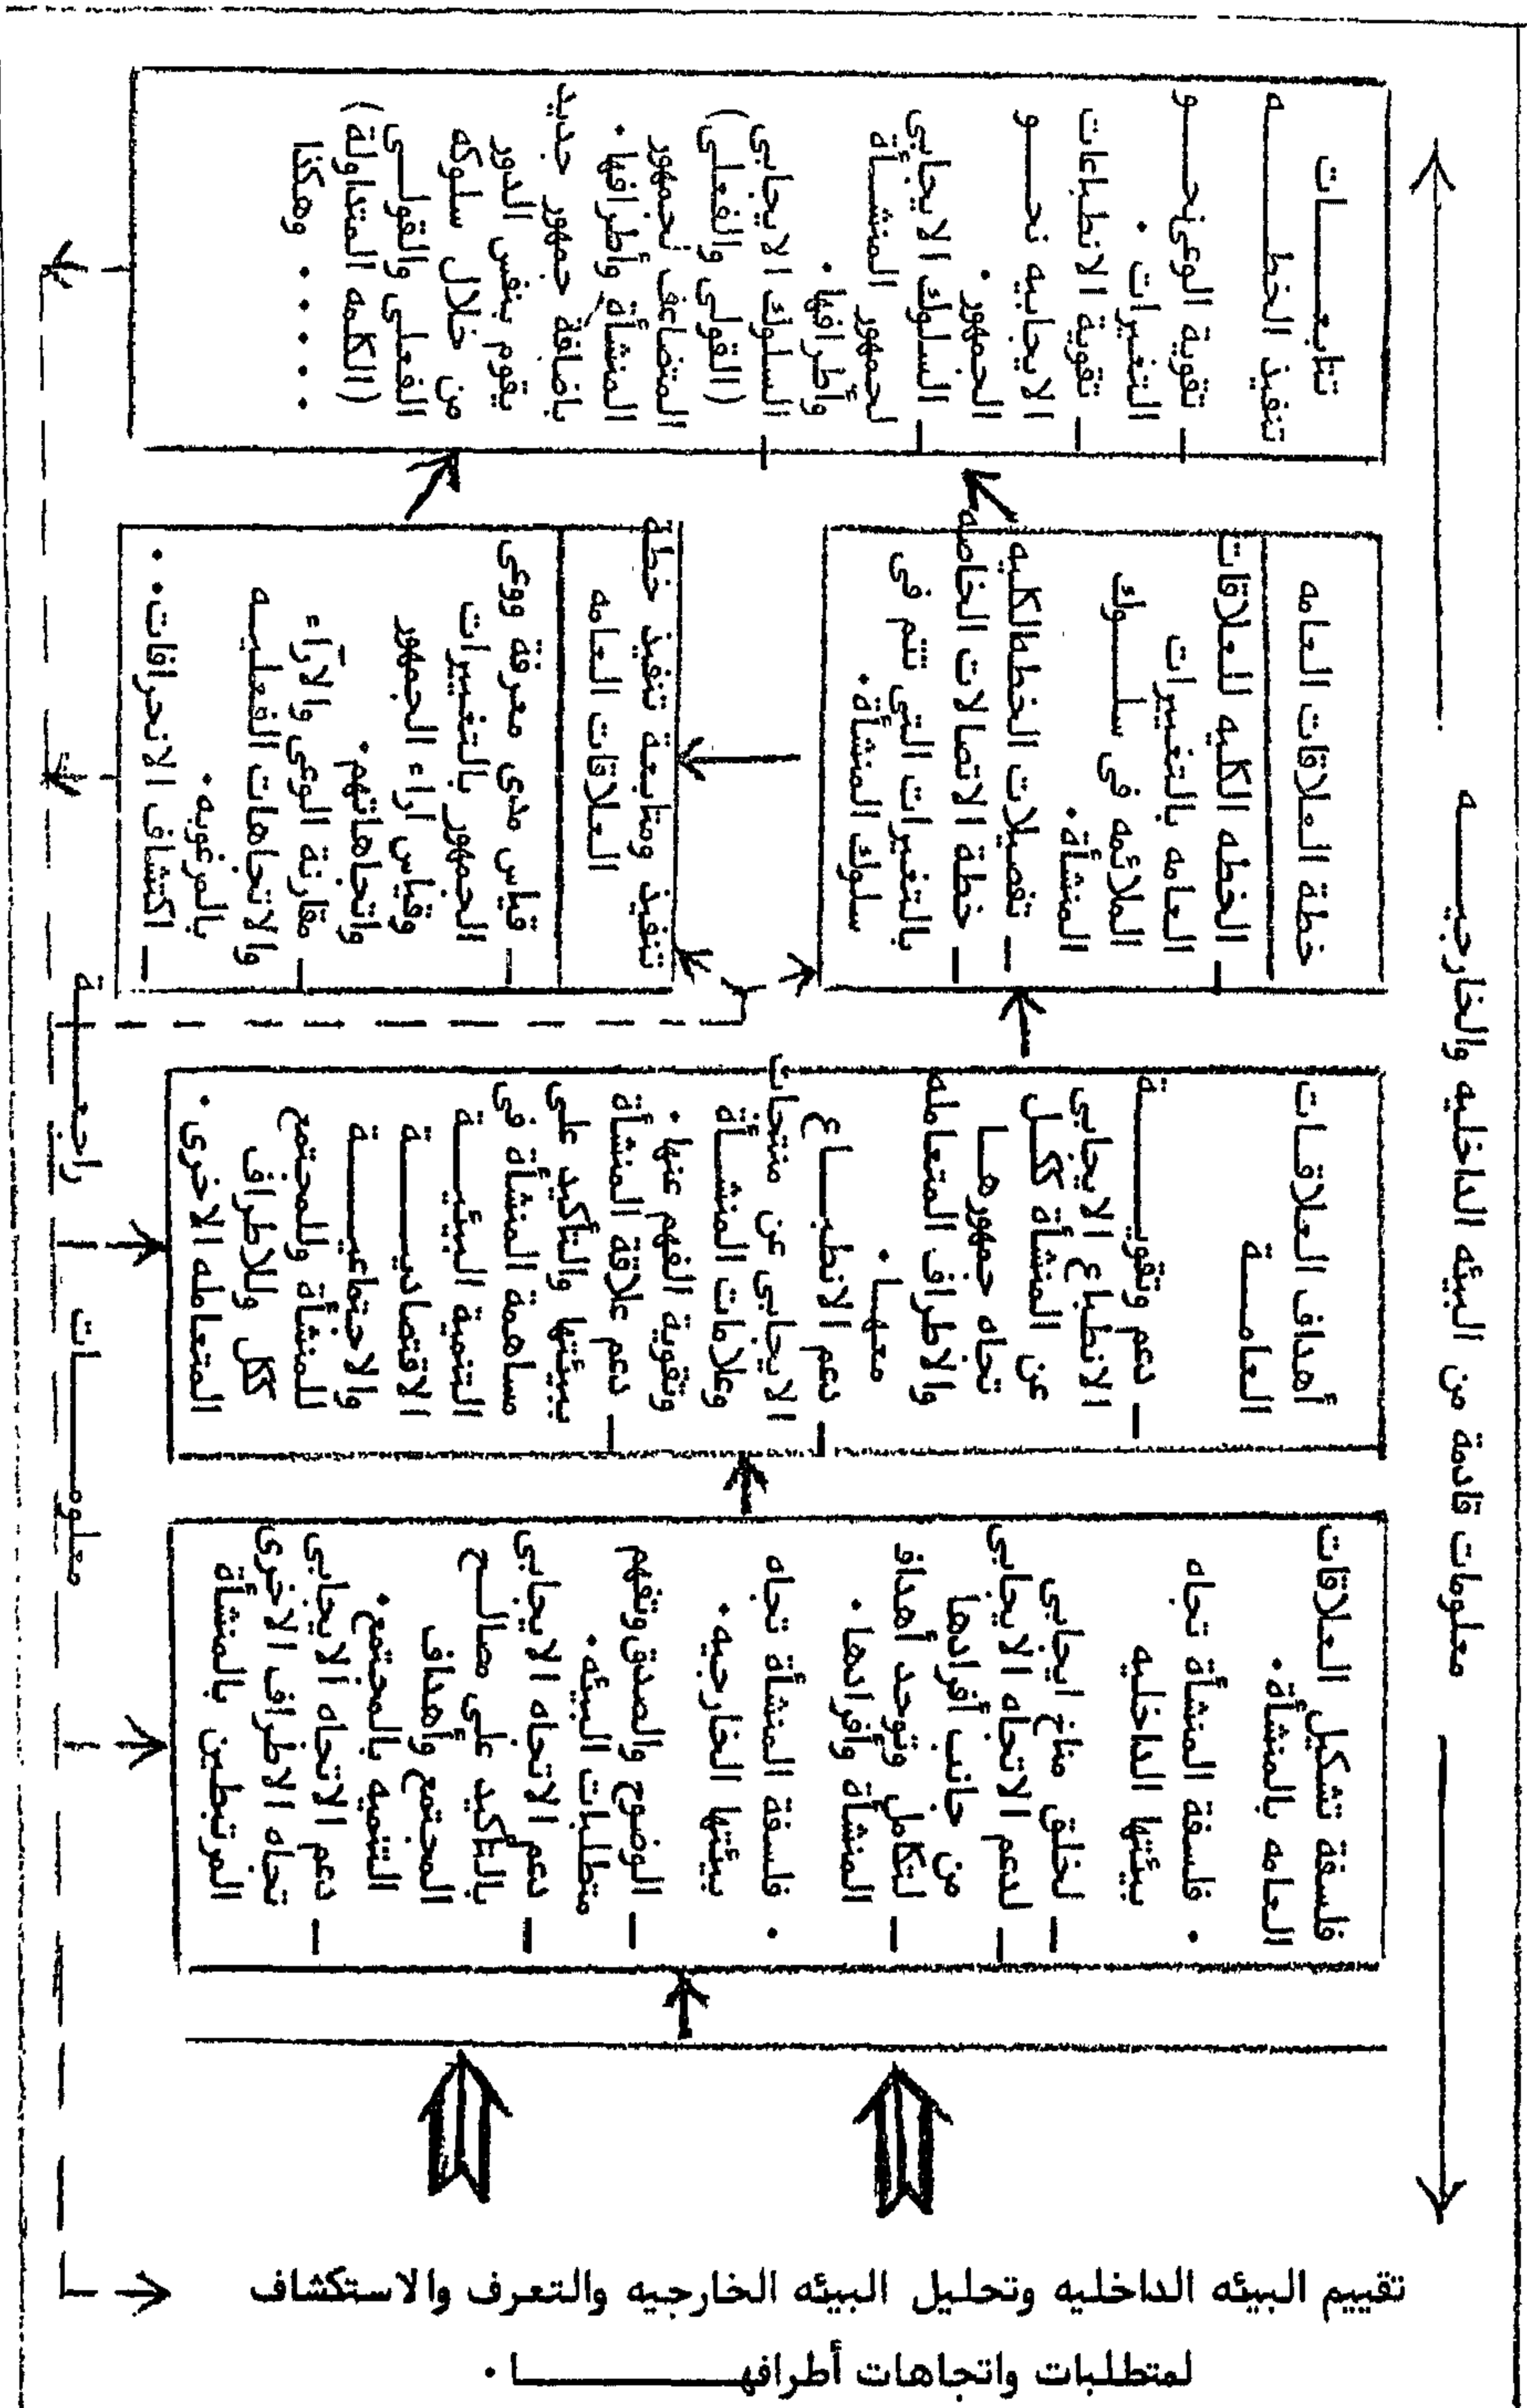 معلومات قادمة من البيئه الداخليه والخارجيه
تقييم البيئه الداخليه وتحليل البيئه الخارجيه والتعرف والاستكشاف
لمتطلبات واتجاهات أطرافها .
فلسفة تشكيل العلاقات
العامه بالمنشأة .
• فلسفة المنشأة تجاه
بيئتها الداخليه
— لخلق مناخ ايجابى
— لدعم الاتجاه الايجابى
من جانب أفرادها
— لتكامل وتوحد أهداف
المنشأة وأفرادها .
• فلسفة المنشأة تجاه
بيئتها الخارجيه .
— الوضوح والصدق وتفهم
متطلبات البيئه .
— دعم الاتجاه الايجابى
بالتأكيد على مصالح
المجتمع وأهداف
التنميه بالمجتمع .
— دعم الاتجاه الايجابى
تجاه الاطراف الاخرى
المرتبطين بالمنشأة
أهداف العلاقات
العامة
— دعم وتقوية
الانطباع الايجابى
عن المنشأة ككل
تجاه جمهورها
والاطراف المتعامله
معها .
— دعم الانطباع
الايجابى عن منتجات
وعلامات المنشأة
وتقوية الفهم عنها .
— دعم علاقة المنشأة
ببيئتها والتأكيد على
مساهمة المنشأة فى
التنمية البيئية
الاقتصادية
والاجتماعية
للمنشأة وللمجتمع
ككل وللاطراف
المتعامله الاخرى .
خطة العلاقات العامه
— الخطه الكليه للعلاقات
العامه بالتغييرات
الملائمه فى سلوك
المنشأة .
— تفصيلات الخطط الكليه
— خطة الاتصالات الخاصه
بالتغيرات التى تتم فى
سلوك المنشأة .
تنفيذ ومتابعة تنفيذ خطة
العلاقات العامه
— قياس مدى معرفة ووعى
الجمهور بالتغييرات
وقياس آراء الجمهور
واتجاهاتهم .
— مقارنة الوعى والآراء
والاتجاهات الفعليه
بالمرغوبه .
— اكتشاف الانحرافات . .
تتابعات
تنفيذ الخطه
— تقوية الوعى نحو
التغيرات .
— تقوية الانطباعات
الايجابيه نحو
الجمهور .
— السلوك الايجابى
لجمهور المنشأة
وأطرافها .
— السلوك الايجابى
(القولى والفعلى)
المتضاعف لجمهور
المنشأة وأطرافها .
باضافة جمهور جديد
يقوم بنفس الدور
من خلال سلوكه
الفعلى والقولى
(الكلمه المتداولة)
. . . . وهكذا
معلومات راجعة